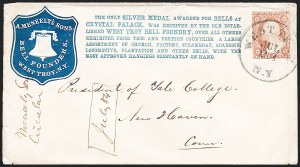 A. MENEELY'S SONS,
BELL FOUNDERS,
WEST TROY, N.Y.
THE ONLY SILVER MEDAL AWARDED FOR BELLS AT
CRYSTAL PALACE, WAS RECEIVED BY THE OLD ESTAB-
LISHED WEST TROY BELL FOUNDRY, OVER ALL OTHERS
EXHIBITED FROM THIS AND FOREIGN COUNTRIES. A LARGE
ASSORTMENT OF CHURCH, FACTORY, STEAMBOAT, ACADEMY,
LOCOMOTIVE, PLANTATION AND OTHER BELLS, WITH THE
MOST APPROVED HANGINGS CONSTANTLY ON HAND.
WEST
N.Y.
President of Yale College,
New Haven,
Conn.
Circular
July